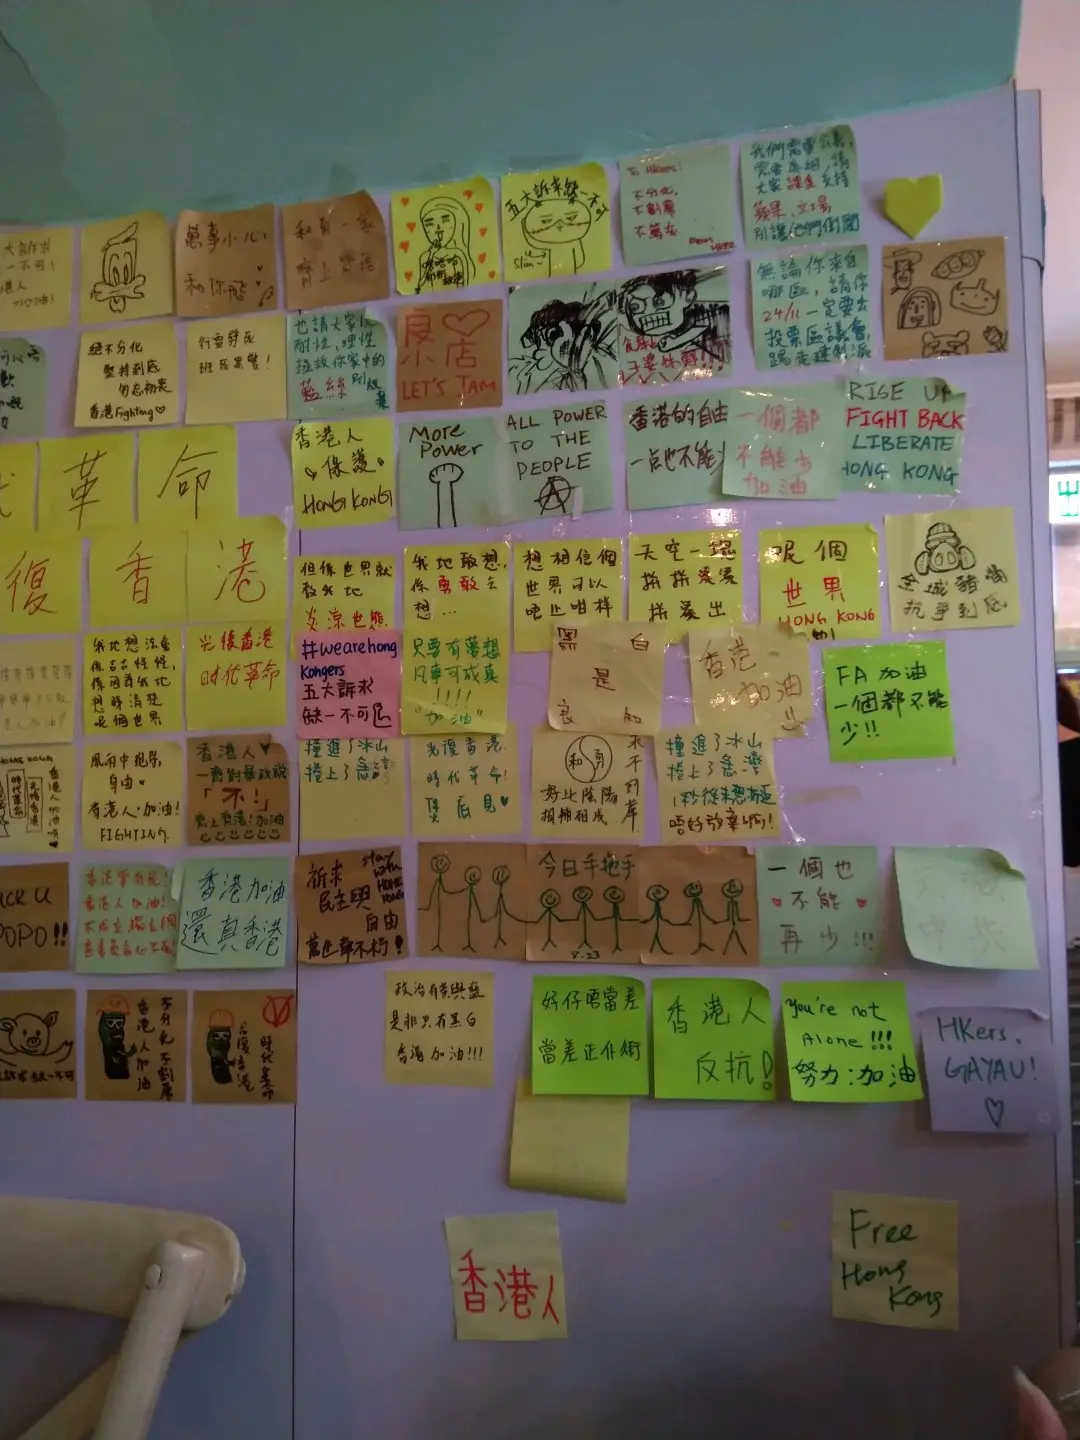 一不可!
加油!
萬事小心!
和你飛
五大訴求缺一不可
To HKers:
不分化,
不割席
不篤灰
From HKER
我們需要公義,
大家課金支持
蘋果、立場
別讓他們倒閉
絕不分化
堅持到底
勿忘初衷
香港Fighting♡
也請大家以
耐性,理性
拯救你家中的
藍絲
良
小店
LET'S JAM
無論你來自
哪區,請你
24/11 一定要去
投票區議會,
踢走建制派
革
命
香港人
保護
HONG KONG
More
Power
ALL POWER
TO THE
PEOPLE
香港的自由
一点也不能少
一個都
不能少
加油
RISE UP
FIGHT BACK
LIBERATE
HONG KONG
復
香
港
但係世界就
教我地
炎涼世態
我地敢想,
係勇敢去
想...
想相信個
世界可以
唔止咁樣
天空一塊
呢個
世界
HONG KONG
全城豬嘴
抗爭到底
我地想法會
係古古怪怪,
係因為我地
想時消是
呢個世界
光復香港
時代革命
#wearehong
Kongers
五大訴求
缺一不可
只要有夢想
凡事可成真
!!!!
"加油"
黑 白
是
良 知
香港
加油
FA 加油
一個都不能
少!!
風雨中抱緊
自由
香港人·加油!
FIGHTING
香港人♥
一齊對暴政說
「不!」
撞進了冰山
捲上了急灣
光復香港
時代革命!
煲底見♥
和 勇
好比陰陽
相輔相成
撞進了冰山
捲上了急灣
唔好放棄呀!
FUCK U
POPO!!
香港人加油!
香港加油
還真香港
祈求
民主與
自由
萬世都不朽!
今日手拖手
8.23
一個也
不能
再少!!!
香港人加油
不分化 不割席
光復香港
時代革命
政治有黃與藍
是非只有黑白
香港加油!!!
好仔唔當差
當差正仆街
香港人
反抗!
You're not
Alone!!!
努力:加油
HKers,
GAYAU!
♡
香港人
Free
Hong
Kong